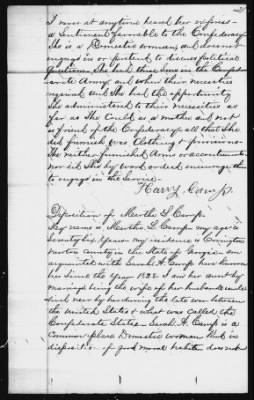 I never at anytime heard her express
a sentiment favorable to the Confederacy
She is a Domestic woman and does not
engage in or pretend to discuss political
questions. She had three sons in the Confed-
erate Army and when their necessities
required and she had the opportunity
She administered to their necessities as
far as she could as a mother and not
as friend of the Confederacy all that she
did furnish was Clothing & provisions.
She neither furnished Arms or accoutrements
nor did she by word or deed encourage them
to engage in the Service
Harry Camp
Deposition of Martha L Camp
My name is Martha L Camp my age is
Seventy six years my residence is Covington
Newton county in the State of Georgia. I am
acquainted with Sarah A. Camp have known
her since the year 1828. I am her aunt by
marriage being the wife of her husbands uncle
lived near by her during the late war between
the United States & what was called the
Confederate States. Sarah A. Camp is a
common place Domestic woman kind in
disposition of good moral habits does not